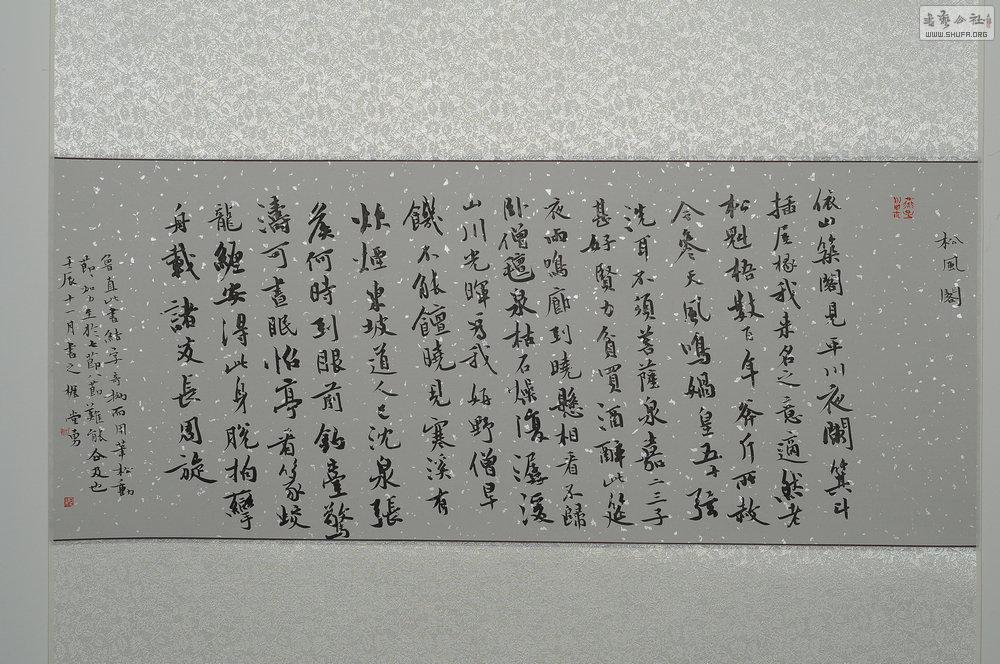 松風閣
依山築閣見平川夜闌箕斗
插屋椽我來名之意適然老
松魁梧數百年斧斤所赦
今參天風鳴媧皇五十弦
洗耳不須菩薩泉嘉二三子
甚好賢力貧買酒醉此筵
夜雨鳴廊到曉懸相看不歸
臥僧氈泉枯石燥復潺湲
山川光暉為我妍野僧早
饑不能饘曉見寒溪有
炊煙東坡道人已沈泉張
侯何時到眼前釣臺驚
濤可晝眠怡亭看篆蛟
龍纏安得此身脫拘攣
舟載諸友長周旋
魯直此書結字奇拗而用筆松動
節加力至於七節節難能合及也
壬辰十一月書之
書藝公社
WWW.SHUFA.ORG